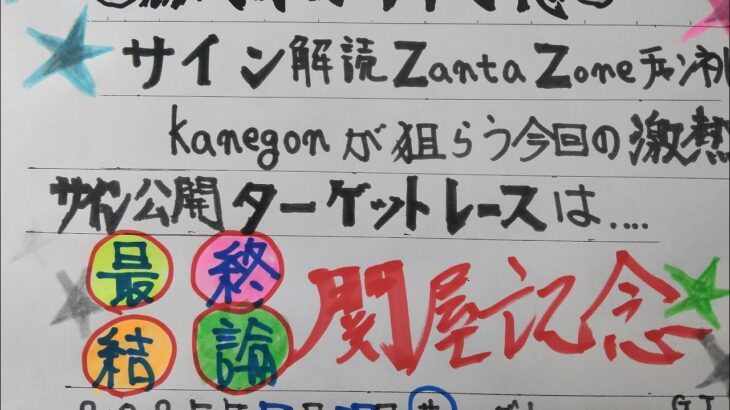 サイン解読ZantaZoneチャンネル
kanegonが狙らう今回の激熱
サイン公開ターゲットレースは....
最終
結論
関屋記念